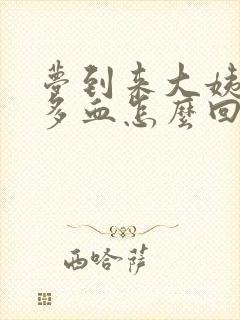 夢到來大姨
多血怎麼回
西哈薩